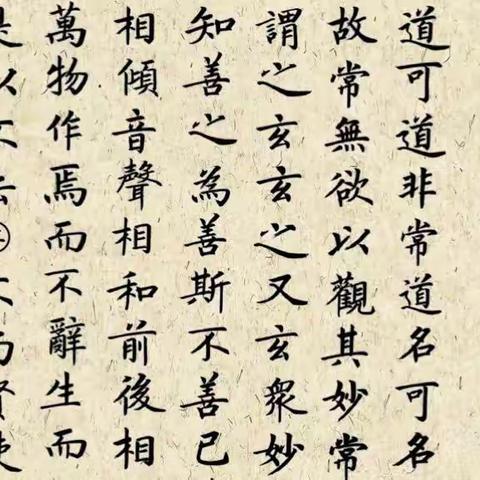 道可道非常道名可名
故常無欲以觀其妙常
謂之玄玄之又玄衆妙
知善之為善斯不善已
相傾音聲相和前後相
萬物作焉而不辭生而